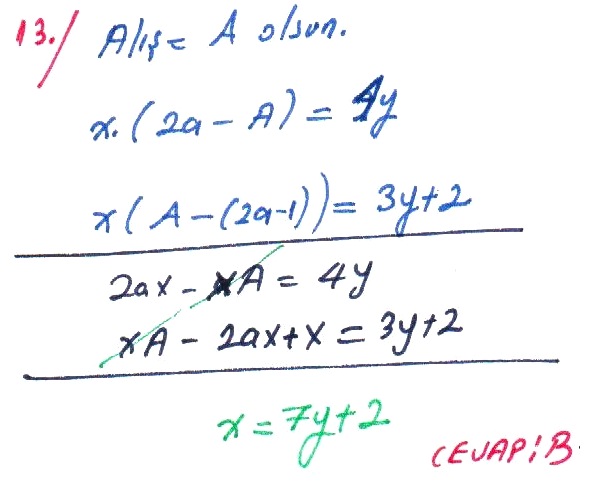 13./ Alış= A olsun.
x.(2a-A)=4y
x(A-(2a-1))=3y+2
2ax-xA=4y
xA-2ax+x=3y+2
x=7y+2
CEVAP:B